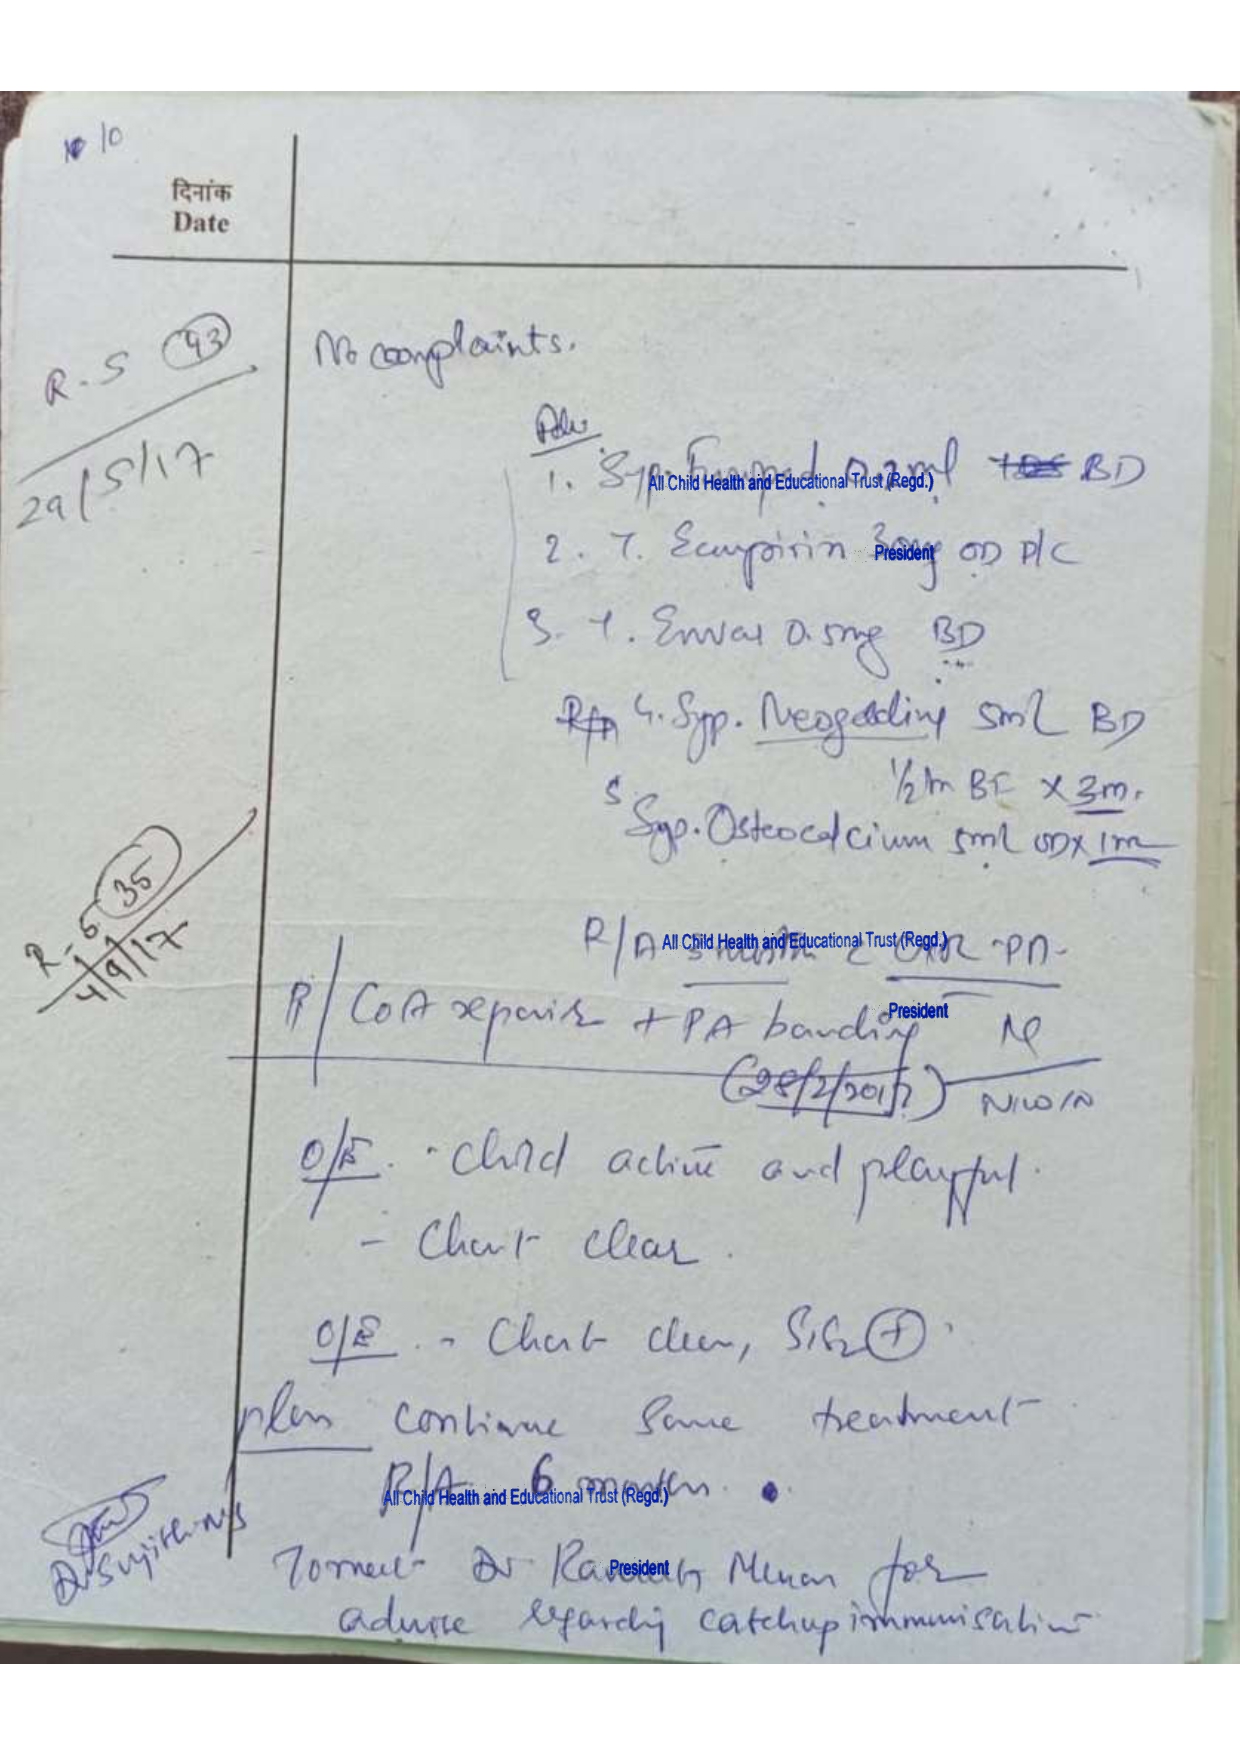 10
दिनांक
Date
R-S 93
29/5/17
No complaints.
Adv
1. Syp. 0.2ml BD
All Child Health and Educational Trust (Regd.)
2. T. Ecospirin 30mg OD P/C
President
3. T. Envas 0.5mg BD
4. Syp. 5ml BD
1/2 hr BF x 3m.
5 Syp. Osteocalcium 5ml OD x 1m
R-S 35
4/9/17
R/A 3 month c CXR-PA
All Child Health and Educational Trust (Regd.)
P/ CoA repair + PA banding
President
(28/2/2017)
O/E. - Child active and playful.
- Chest clear.
O/E. - Chest clear, S1S2 +
plan continue same treatment
R/A 6 months.
All Child Health and Educational Trust (Regd.)
To meet Dr Menon for
President
advice regarding catchup immunisation